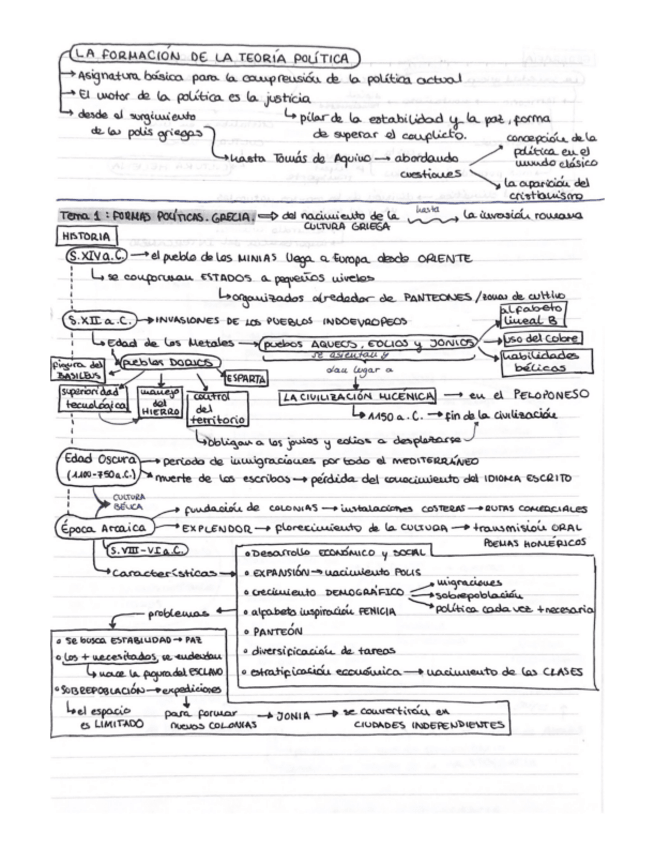 LA FORMACIÓN DE LA TEORÍA POLÍTICA
→ Asignatura básica para la comprensión de la política actual
→ El motor de la política es la justicia
→ desde el surgimiento de las polis griegas
→ pilar de la estabilidad y la paz, forma de superar el conflicto.
→ hasta Tomás de Aquino → abordando cuestiones
concepción de la política en el mundo clásico
la aparición del cristianismo
Tema 1: FORMAS POLÍTICAS. GRECIA. ⇒ del nacimiento de la CULTURA GRIEGA hasta la invasión romana
HISTORIA
S.XIV a.C. → el pueblo de los MINIAS llega a Europa desde ORIENTE
↳ se conforman ESTADOS a pequeños niveles
↳ organizados alrededor de PANTEONES / zonas de cultivo
S.XII a.C. → INVASIONES DE LOS PUEBLOS INDOEUROPEOS
↳ Edad de los Metales → pueblos AQUEOS, EOLIOS y JONIOS
alfabeto lineal B
uso del cobre
habilidades bélicas
se asientan y dan lugar a
pueblos DORIOS
figura del BASILEUS
superioridad tecnológica
manejo del HIERRO
control del territorio
ESPARTA
LA CIVILIZACIÓN MICÉNICA → en el PELOPONESO
↳ 1150 a.C. → fin de la civilización
↳ obligan a los jonios y eolios a desplazarse
Edad Oscura (1.100-750 a.C.) → periodo de inmigraciones por todo el MEDITERRÁNEO
→ muerte de los escribas → pérdida del conocimiento del IDIOMA ESCRITO
CULTURA BÉLICA
Época Arcaica → fundación de COLONIAS → instalaciones COSTERAS → RUTAS COMERCIALES
→ EXPLENDOR → florecimiento de la CULTURA → transmisión ORAL
POEMAS HOMÉRICOS
S. VIII - VI a.C.
Características →
• Desarrollo ECONÓMICO y SOCIAL
• EXPANSIÓN → nacimiento POLIS
• crecimiento DEMOGRÁFICO
→ migraciones
→ sobrepoblación
→ política cada vez + necesaria
• alfabeto inspiración FENICIA
• PANTEÓN
• diversificación de tareas
• estratificación económica → nacimiento de las CLASES
problemas
• se busca ESTABILIDAD → PAZ
• los + necesitados, se endeudan
↳ nace la figura del ESCLAVO
• SOBREPOBLACIÓN → expediciones
↳ el espacio es LIMITADO
para formar nuevas COLONIAS → JONIA → se convertirán en CIUDADES INDEPENDIENTES